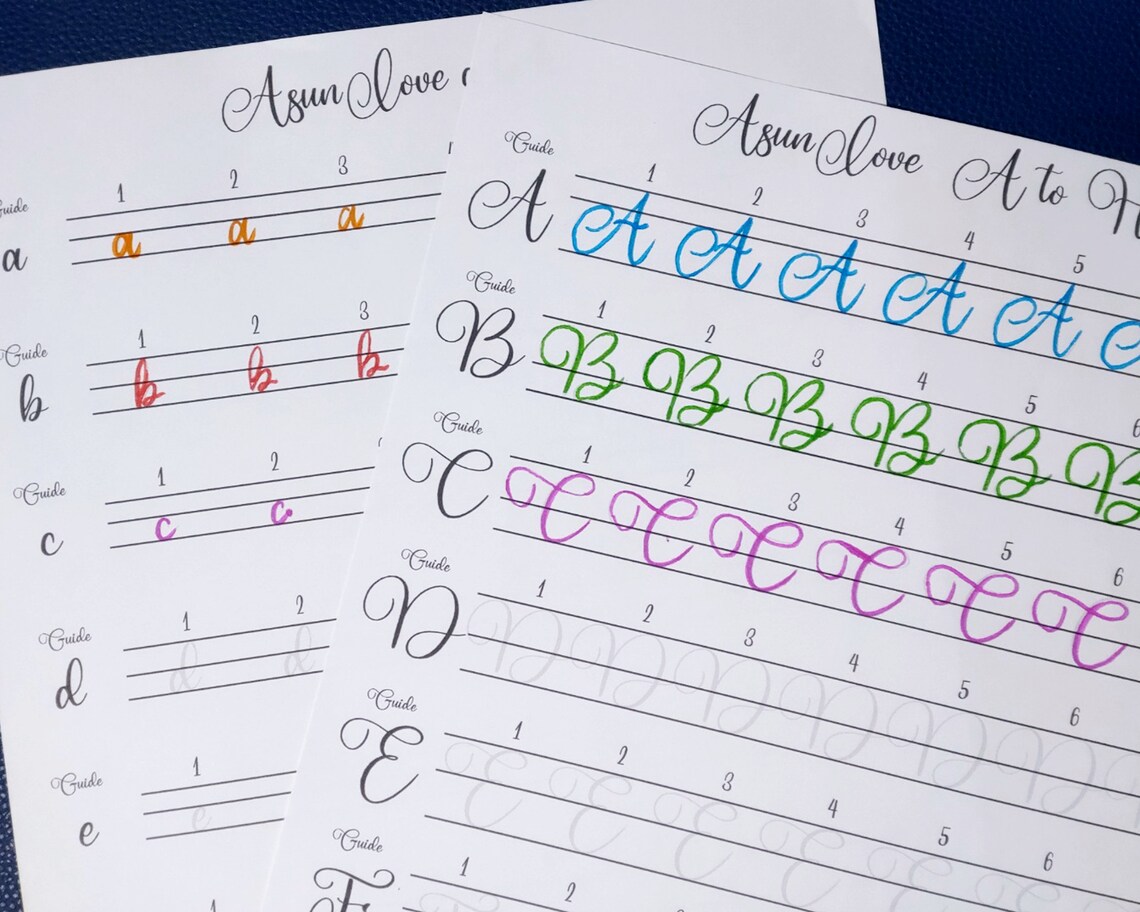 Asun Love
Guide
1 2 3
a a a a
Guide
1 2 3
b b b b
Guide
1 2
c c c
Guide
1 2
d d d
Guide
1
e e
1
Asun Love A to
Guide
1 2 3 4 5
A A A A A A
Guide
1 2 3 4 5 6
B B B B B B B
Guide
1 2 3 4 5 6
C C C C C C C
Guide
1 2 3 4 5 6
D D D D D D D
Guide
1 2 3 4 5 6
E E E E E E
Guide
1 2
F